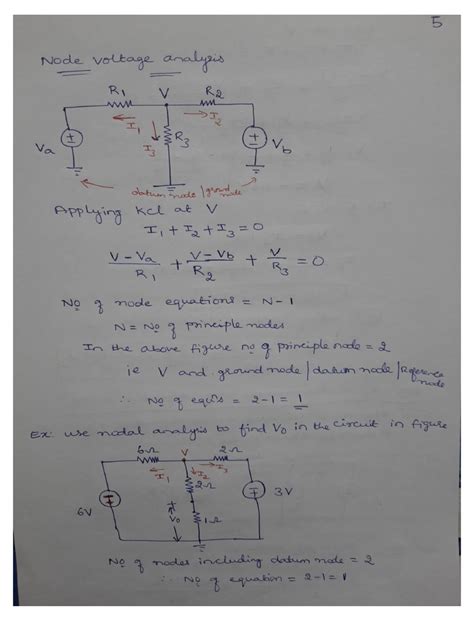 5
Node voltage analysis
R1 V R2
I1 I2
I3 R3
Va Vb
datum node / ground node
Applying KCL at V
I1 + I2 + I3 = 0
V - Va / R1 + V - Vb / R2 + V / R3 = 0
No of node equations = N-1
N = No of principle nodes
In the above figure no of principle node = 2
ie V and ground node / datum node / Reference node
∴ No of equs = 2-1 = 1
Ex: use nodal analysis to find Vo in the circuit in figure
6Ω V 2Ω
I1 I2 I3
2Ω
6V + Vo - 1Ω 3V
No of nodes including datum node = 2
∴ No of equation = 2-1 = 1